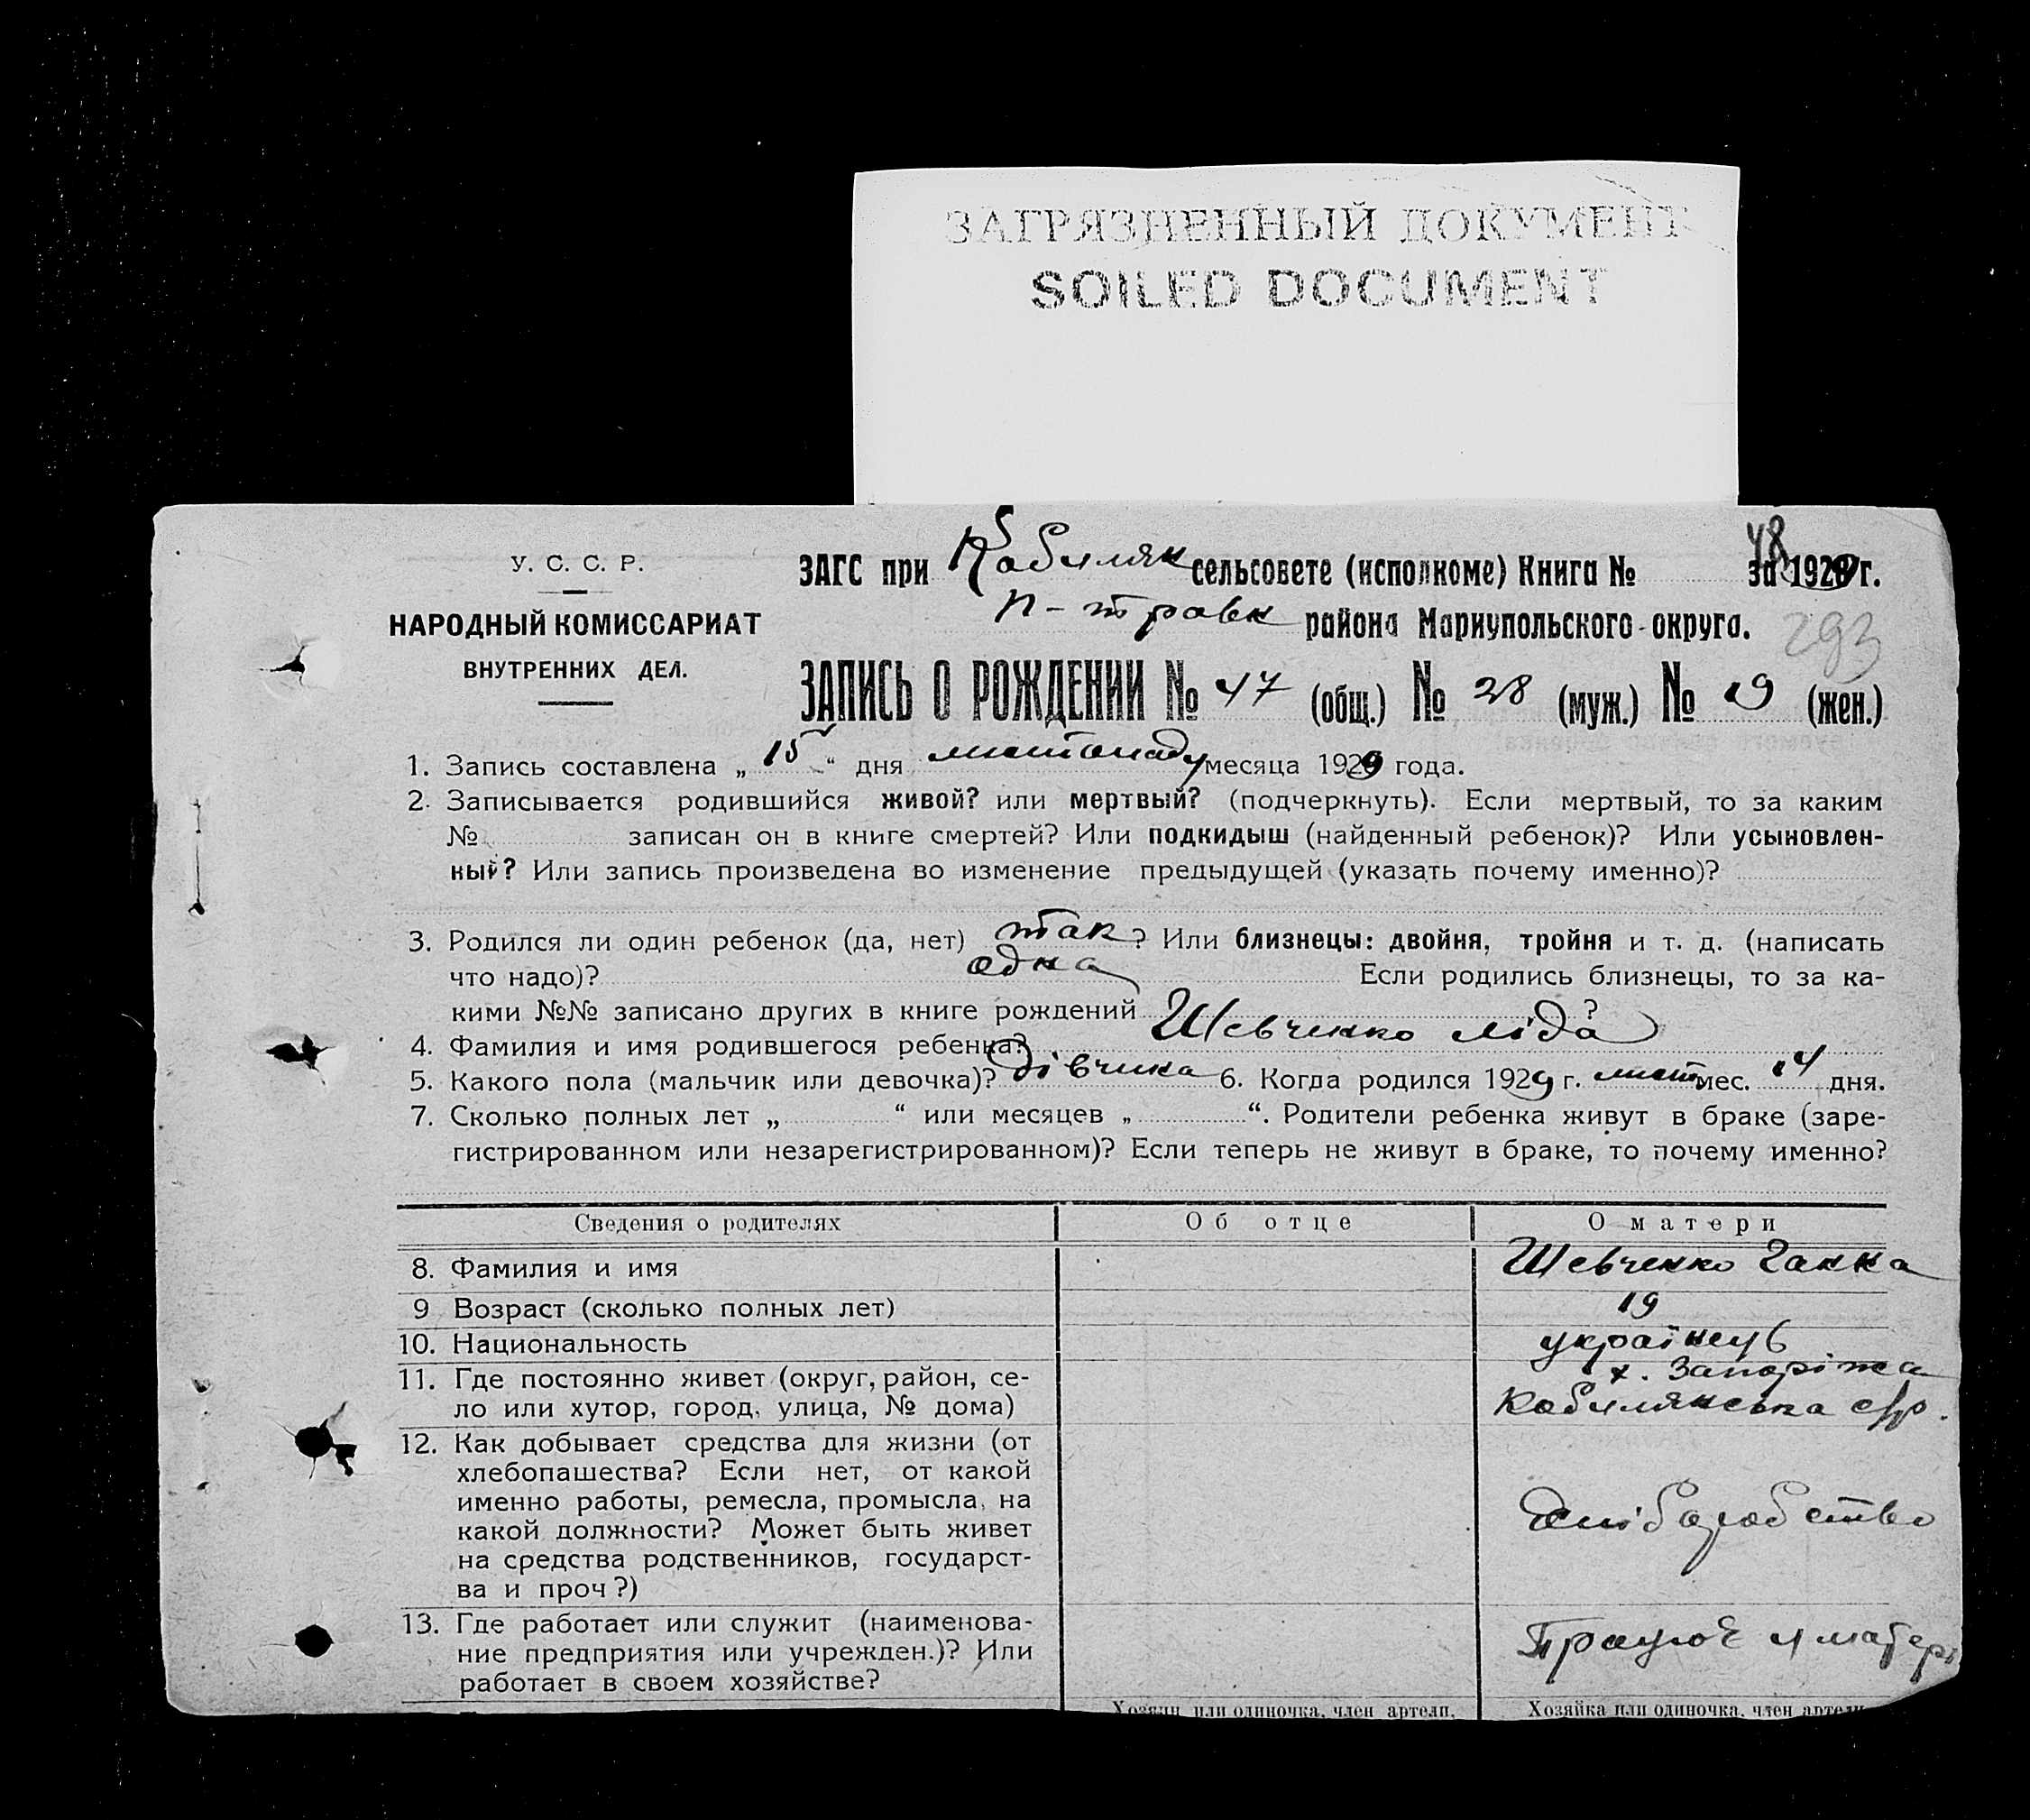 ЗАГРЯЗНЕННЫЙ ДОКУМЕНТ
SOILED DOCUMENT
У. С. С. Р.
НАРОДНЫЙ КОМИССАРИАТ
ВНУТРЕННИХ ДЕЛ.
48
ЗАГС при Кобиляк сельсовете (исполкоме) Книга № за 1929 г.
П-травн района Мариупольского округа.
293
ЗАПИСЬ О РОЖДЕНИИ № 47 (общ.) № 28 (муж.) № 19 (жен.)
1. Запись составлена „ 15 “ дня листопаду месяца 1929 года.
2. Записывается родившийся живой? или мертвый? (подчеркнуть). Если мертвый, то за каким
№ записан он в книге смертей? Или подкидыш (найденный ребенок)? Или усыновлен-
ный? Или запись произведена во изменение предыдущей (указать почему именно)?
3. Родился ли один ребенок (да, нет) так ? Или близнецы: двойня, тройня и т. д. (написать
что надо)? одна Если родились близнецы, то за ка-
кими №№ записано других в книге рождений ?
4. Фамилия и имя родившегося ребенка? Шевченко Ліда
5. Какого пола (мальчик или девочка)? дівчина 6. Когда родился 1929 г. лист мес. 14 дня.
7. Сколько полных лет „ “ или месяцев „ “. Родители ребенка живут в браке (заре-
гистрированном или незарегистрированном)? Если теперь не живут в браке, то почему именно?
Сведения о родителях Об отце О матери
8. Фамилия и имя Шевченко Ганна
9 Возраст (сколько полных лет) 19
10. Национальность
11. Где постоянно живет (округ, район, се-
ло или хутор, город, улица, № дома)
х. Запоріжа
Кобилянська с/р.
12. Как добывает средства для жизни (от
хлебопашества? Если нет, от какой
именно работы, ремесла, промысла, на
какой должности? Может быть живет
на средства родственников, государст-
ва и проч?)
хліборобство
13. Где работает или служит (наименова-
ние предприятия или учрежден.)? Или
работает в своем хозяйстве?
Працює у матери
Хозяин или одиночка, член артели,
Хозяйка или одиночка, член артели